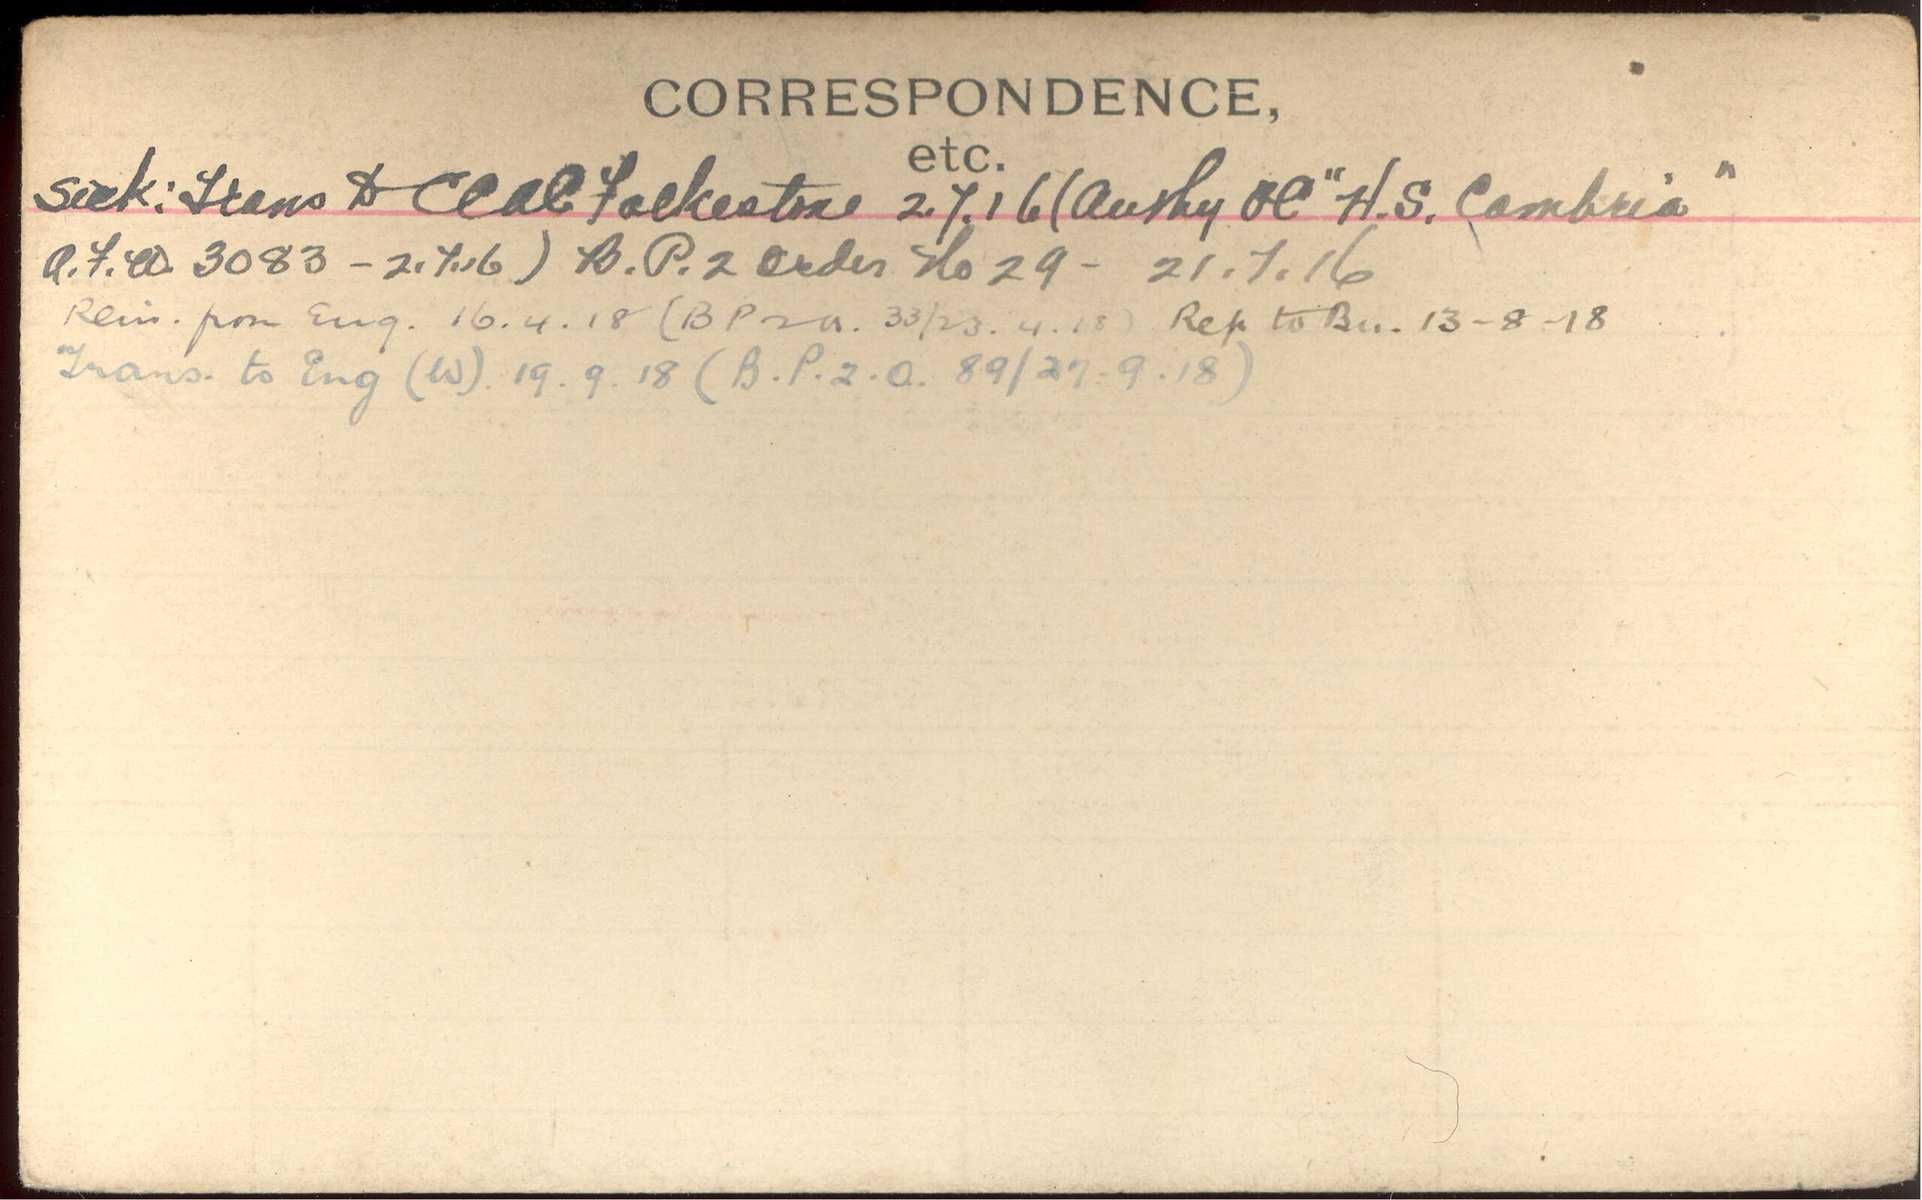 CORRESPONDENCE,
etc.
Sick: Trans to CCAC Folkestone 2.7.16 (Authy OC "H.S. Cambria"
A.F.W. 3083 - 2.7.16) B.P.2 Order No 29 - 21.7.16
Rein. from Eng. 16.4.18 (BP2 O. 33/23.4.18) Rep to Bn. 13-8-18
Trans. to Eng (W). 19.9.18 (B.P.2.O. 89/27.9.18)